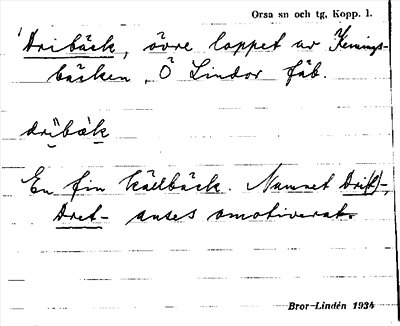 Orsa sn och tg, Kopp. l.
Dribäck, övre loppet av Kenings-
bäcken, Ö Lindor fäb.
dribäk
En fin källbäck. Namnet Drift-,
Dret- anses omotiverat.
Bror Lindén 1934